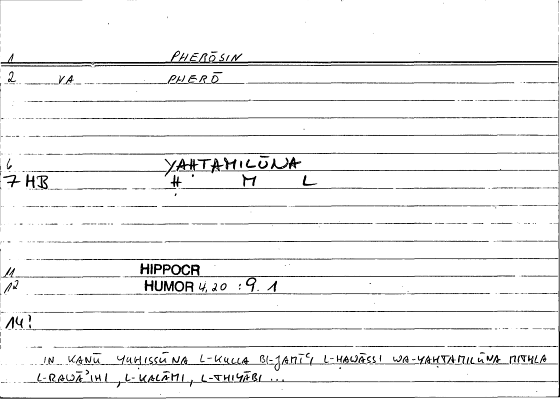 1 PHERŌSIN
2 VA PHERŌ
6 YAḤTAMILŪNA
7 HB Ḥ M L
11 HIPPOCR
12 HUMOR 4,20 : 9. 1
14!
IN KANŪ YUḤISSŪNA L-KULLA BI-JAMĪʿI L-ḤAWĀSSI WA-YAḤTAMILŪNA MITHLA
L-RAWĀʾIḤI, L-KALĀMI, L-THIYĀBI ...